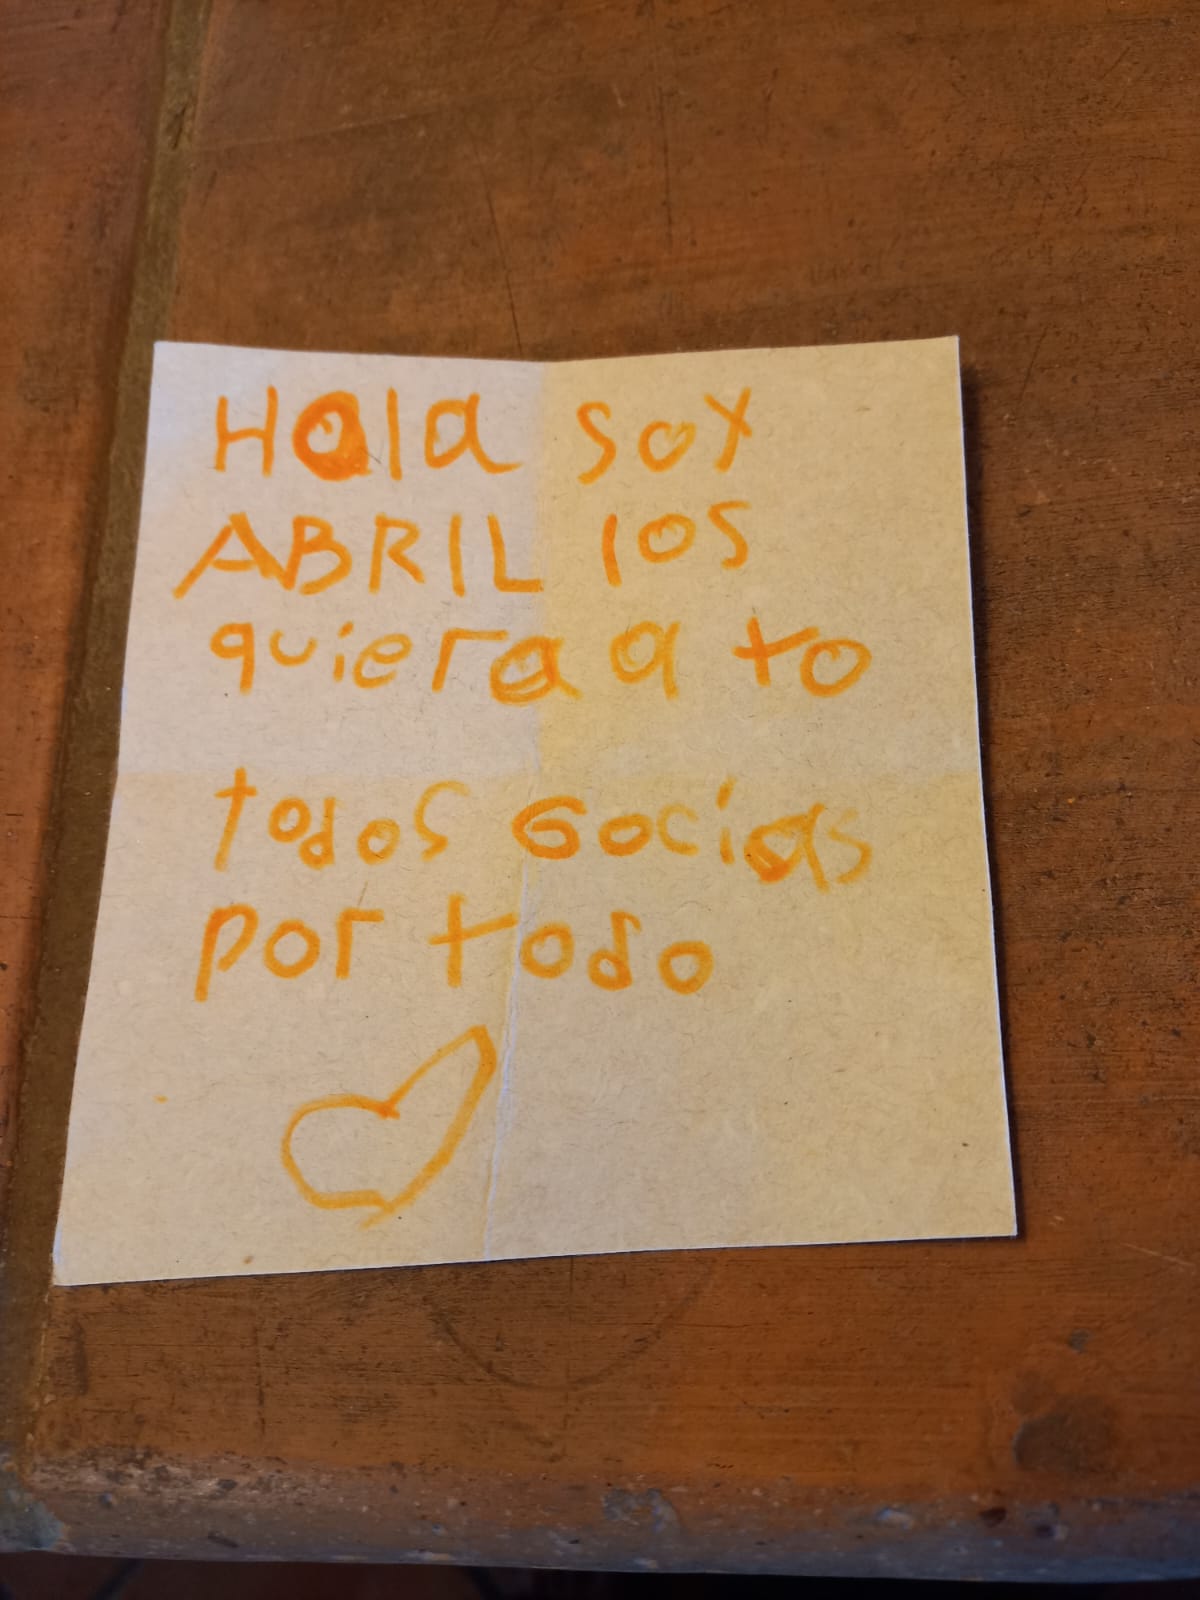 Hola soy
ABRIL los
quiera a to
todos Gocias
por todo